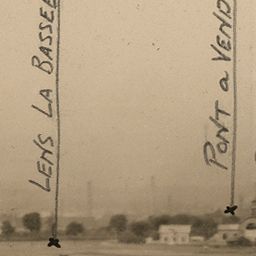 LENS LA BASSEE
PONT a VEND